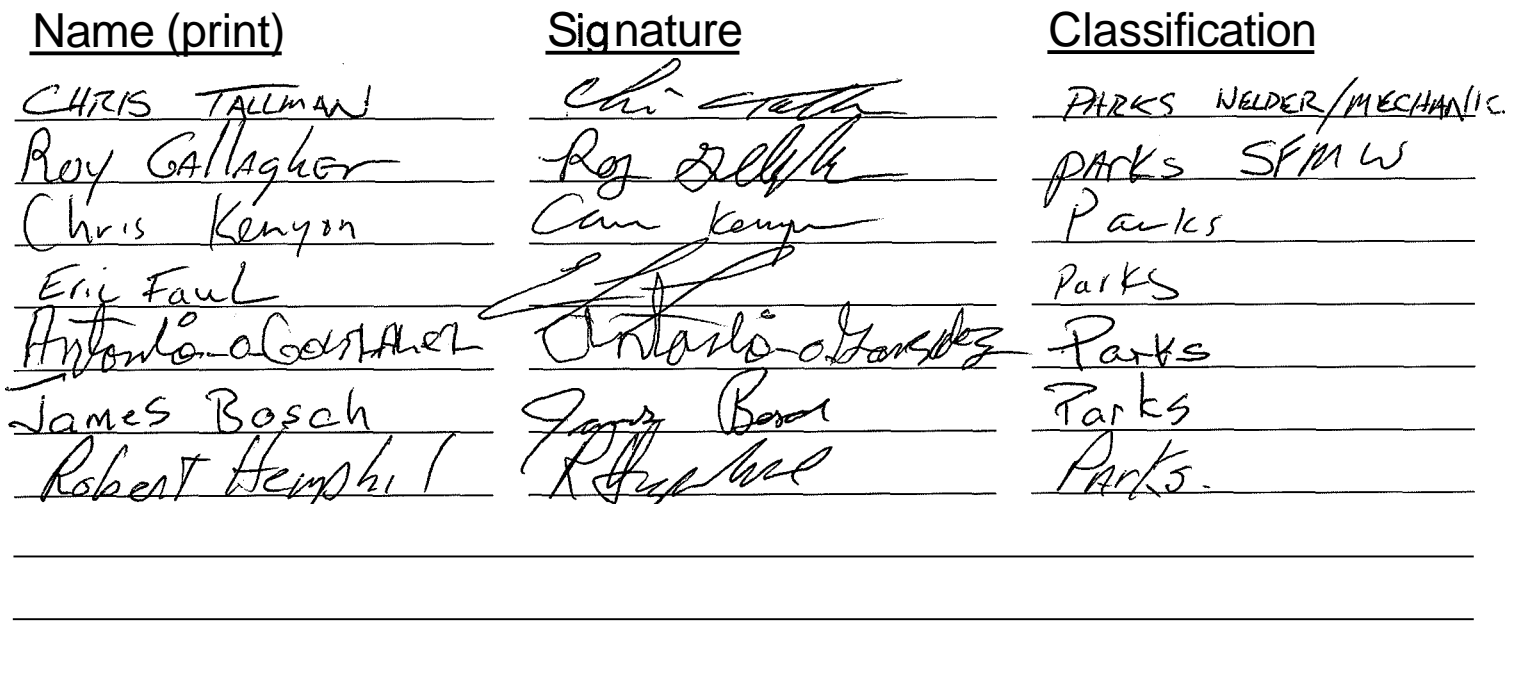 Name (print) Signature Classification
CHRIS TALLMAN Chri Tall PARKS WELDER/MECHANIC.
Roy GAllAgher Roy PArks SFMW
Chris Kenyon Kenyon Parks
Eric Faul Parks
Antonio Antonio Gonzalez Parks
James Bosch James Bosch Parks
Robert Hemphil Parks.